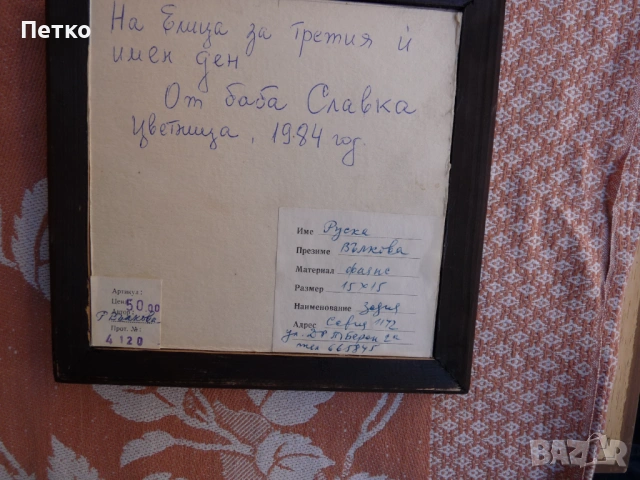 Петко
На Елица за третия ѝ
имен ден
От баба Славка
Цветница, 1984 год.
Име Руска
Презиме Вълкова
Материал фаянс
Размер 15x15
Наименование Зодия
Адрес София 1172
тел 665845
Артикул:
Цена 50.00
Автор:
Р Вълкова
Прот. №:
4120
BAZAR